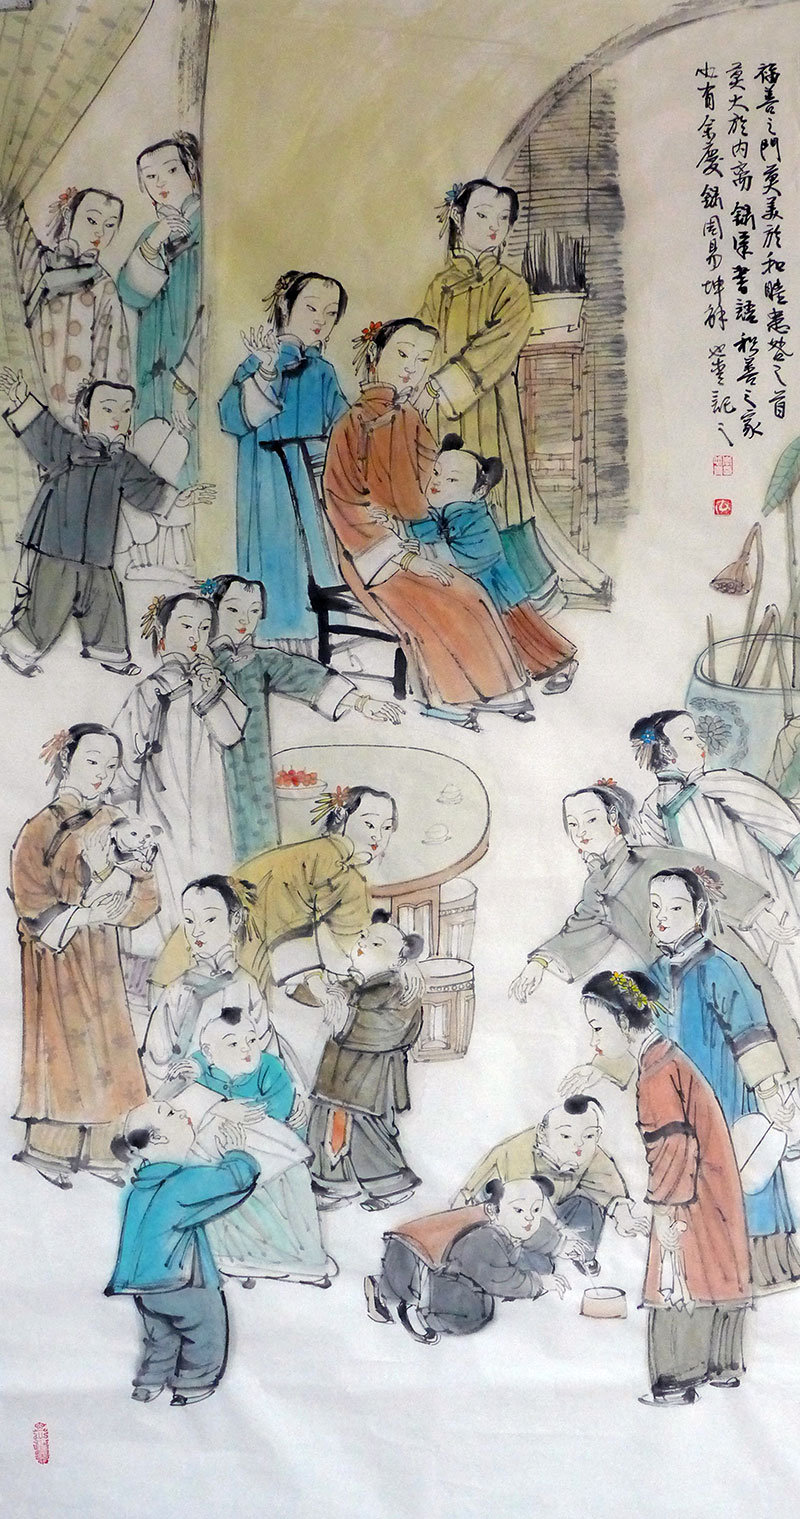 福善之門莫美於和睦患咎之首
莫大於内离 録漢書語 积善之家
必有余慶 録周易坤辞 記之